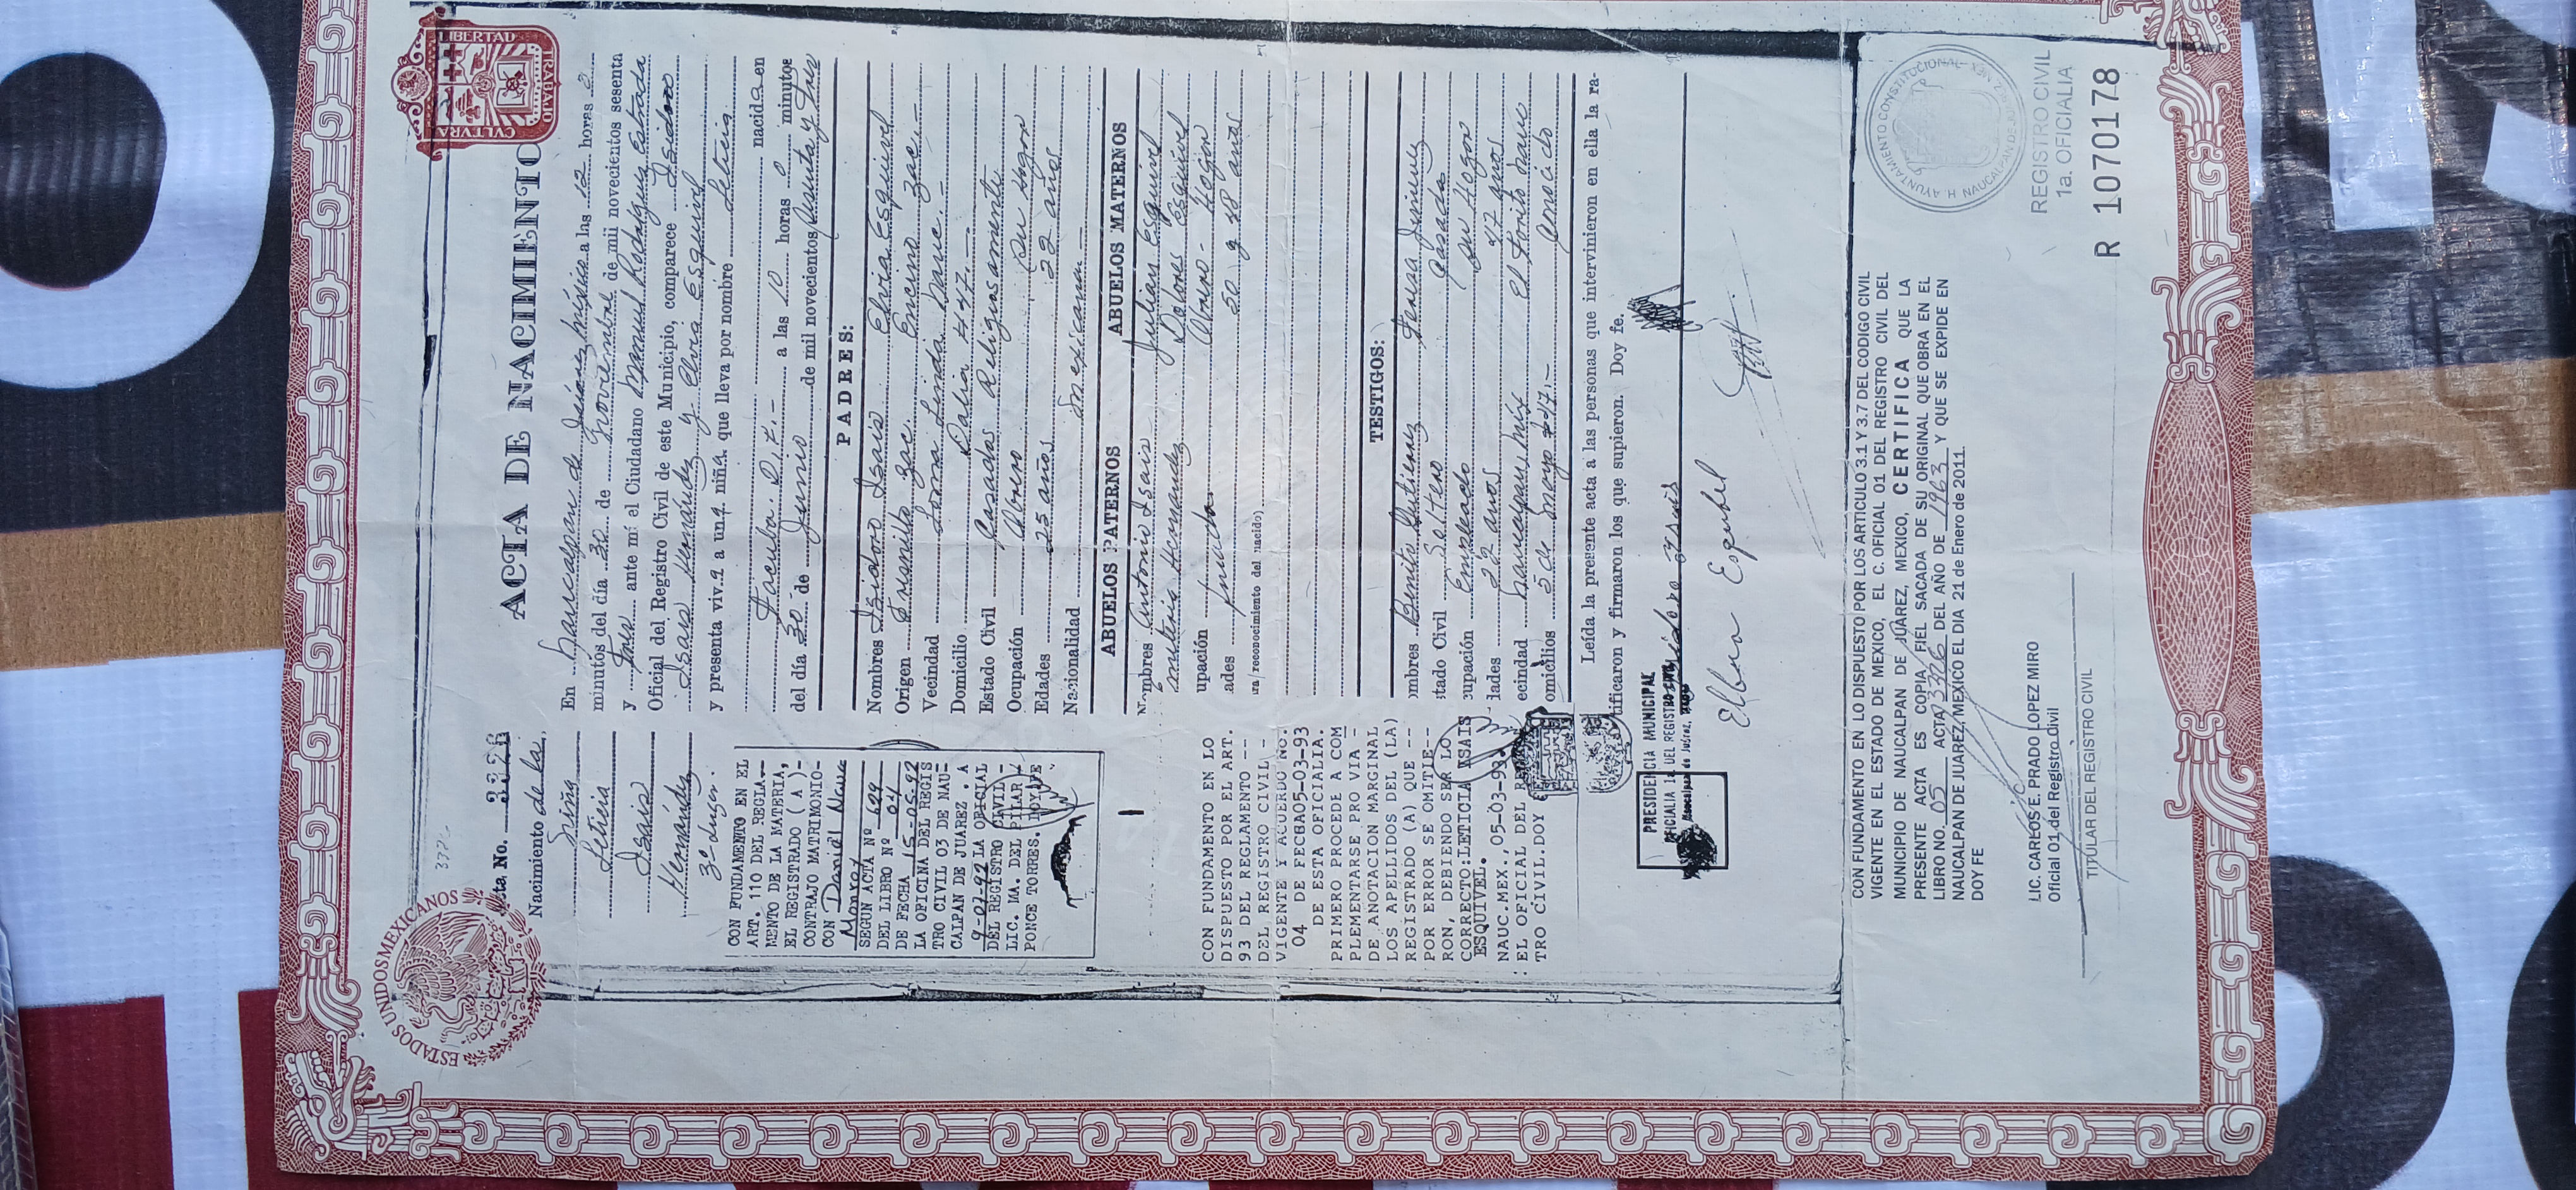 ESTADOS UNIDOS MEXICANOS
LIBERTAD
CVLTVRA
TRABAJO
ACTA DE NACIMIENTO
Acta No. 3326
Nacimiento de la
Niña
Leticia
Isais
Hernández
3er Lugar.
En Naucalpan de Juárez México a las 12 horas 2
minutos del día 30 de Noviembre de mil novecientos sesenta
y tres ante mí el Ciudadano Manuel Rodríguez Estrada
Oficial del Registro Civil de este Municipio, comparece Isidoro
Isais Hernández y Elvia Esquivel
y presenta viva a una niña que lleva por nombre Leticia
nacida en
Tacuba D.F.- a las 10 horas 0 minutos
del día 30 de Junio de mil novecientos sesenta y tres
PADRES:
Nombres Isidoro Isais Elvia Esquivel
Origen Fresnillo Zac. Encino Zac.-
Vecindad Loma Linda Nauc.-
Domicilio Dalia #47.-
Estado Civil Casados Religiosamente
Ocupación Obrero Su Hogar
Edades 25 años 22 años
Nacionalidad Mexicanos-
ABUELOS PATERNOS ABUELOS MATERNOS
Nombres Antonio Isais Julian Esquivel
Hernandez Dolores Esquivel
upación Obrero- Hogar
ades finados 50 y 48 años
ura/reconocimiento del nacido)
TESTIGOS:
ombres Benito Gutierrez Teresa Jimenez
stado Civil Soltero Casada
cupación Empleado Su Hogar
dades 22 años 47 años
ecindad Naucalpan, Méx El Torito Nauc
omicilios 5 de Mayo #47.- conocido
Leída la presente acta a las personas que intervinieron en ella la ra-
tificaron y firmaron los que supieron. Doy fe.
CON FUNDAMENTO EN EL
ART. 110 DEL REGLA--
MENTO DE LA MATERIA,
EL REGISTRADO (A)-
CONTRAJO MATRIMONIO-
CON Daniel Nava
Monroy
SEGUN ACTA Nº 629
DEL LIBRO Nº 04
DE FECHA 15-05-92
LA OFICINA DEL REGIS
TRO CIVIL 03 DE NAU-
CALPAN DE JUAREZ. A
9-07-92 LA OFICIAL
DEL REGISTRO CIVIL-
LIC. MA. DEL PILAR
PONCE TORRES. DOY FE
CON FUNDAMENTO EN LO
DISPUESTO POR EL ART.
93 DEL REGLAMENTO --
DEL REGISTRO CIVIL -
VIGENTE Y ACUERDO NO.
04 DE FECHA05-03-93
DE ESTA OFICIALIA.
PRIMERO PROCEDE A COM
PLEMENTARSE PRO VIA -
DE ANOTACION MARGINAL
LOS APELLIDOS DEL (LA)
REGISTRADO (A) QUE --
POR ERROR SE OMITIE--
RON, DEBIENDO SER LO
CORRECTO:LETICIA ISAIS
ESQUIVEL.
NAUC.MEX.,05-03-93.
:EL OFICIAL DEL REGIS
TRO CIVIL.DOY
PRESIDENCIA MUNICIPAL
OFICIALIA 1a DEL REGISTRO CIVIL
Naucalpan de Juárez,
Isidoro Isais
Elbia Esquibel
CON FUNDAMENTO EN LO DISPUESTO POR LOS ARTICULO 3.1 Y 3.7 DEL CODIGO CIVIL
VIGENTE EN EL ESTADO DE MEXICO, EL C. OFICIAL 01 DEL REGISTRO CIVIL DEL
MUNICIPIO DE NAUCALPAN DE JUÁREZ, MEXICO, CERTIFICA QUE LA
PRESENTE ACTA ES COPIA FIEL SACADA DE SU ORIGINAL QUE OBRA EN EL
LIBRO NO. 05 ACTA 3326 DEL AÑO DE 1963 Y QUE SE EXPIDE EN
NAUCALPAN DE JUAREZ, MEXICO EL DIA 21 de Enero de 2011
DOY FE
LIC. CARLOS E. PRADO LOPEZ MIRO
Oficial 01 del Registro Civil
TITULAR DEL REGISTRO CIVIL
H. AYUNTAMIENTO CONSTITUCIONAL
NAUCALPAN DE JUAREZ MEX.
REGISTRO CIVIL
1a. OFICIALIA
R 1070178